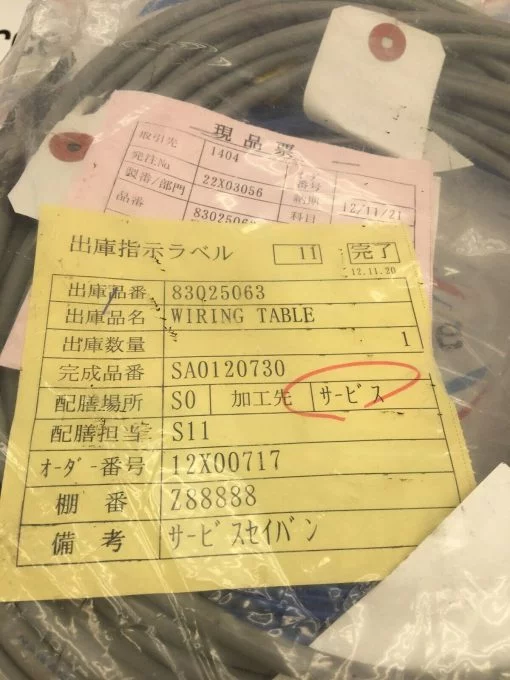 現品票
取引先 1404
発注No 番号
製番/部門 22X03056 納期 12/11/21
品番 8302506 科目
出庫指示ラベル 11 完了
12.11.20
出庫品番 83Q25063
出庫品名 WIRING TABLE
出庫数量 1
完成品番 SA0120730
配膳場所 S0 加工先 サービス
配膳担当 S11
オーダー番号 12X00717
棚番 Z88888
備考 サービスセイバン